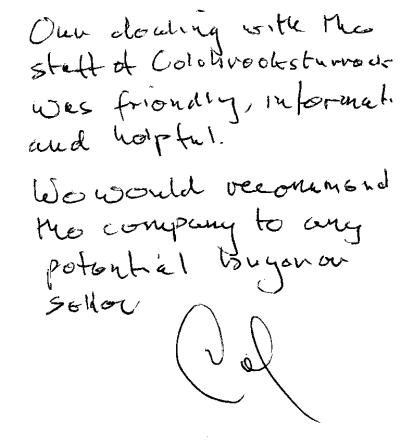 Our dealing with the
staff of Colebrooksturrock
was friendly, informat.
and helpful.
We would recommend
the company to any
potential buyer or
seller